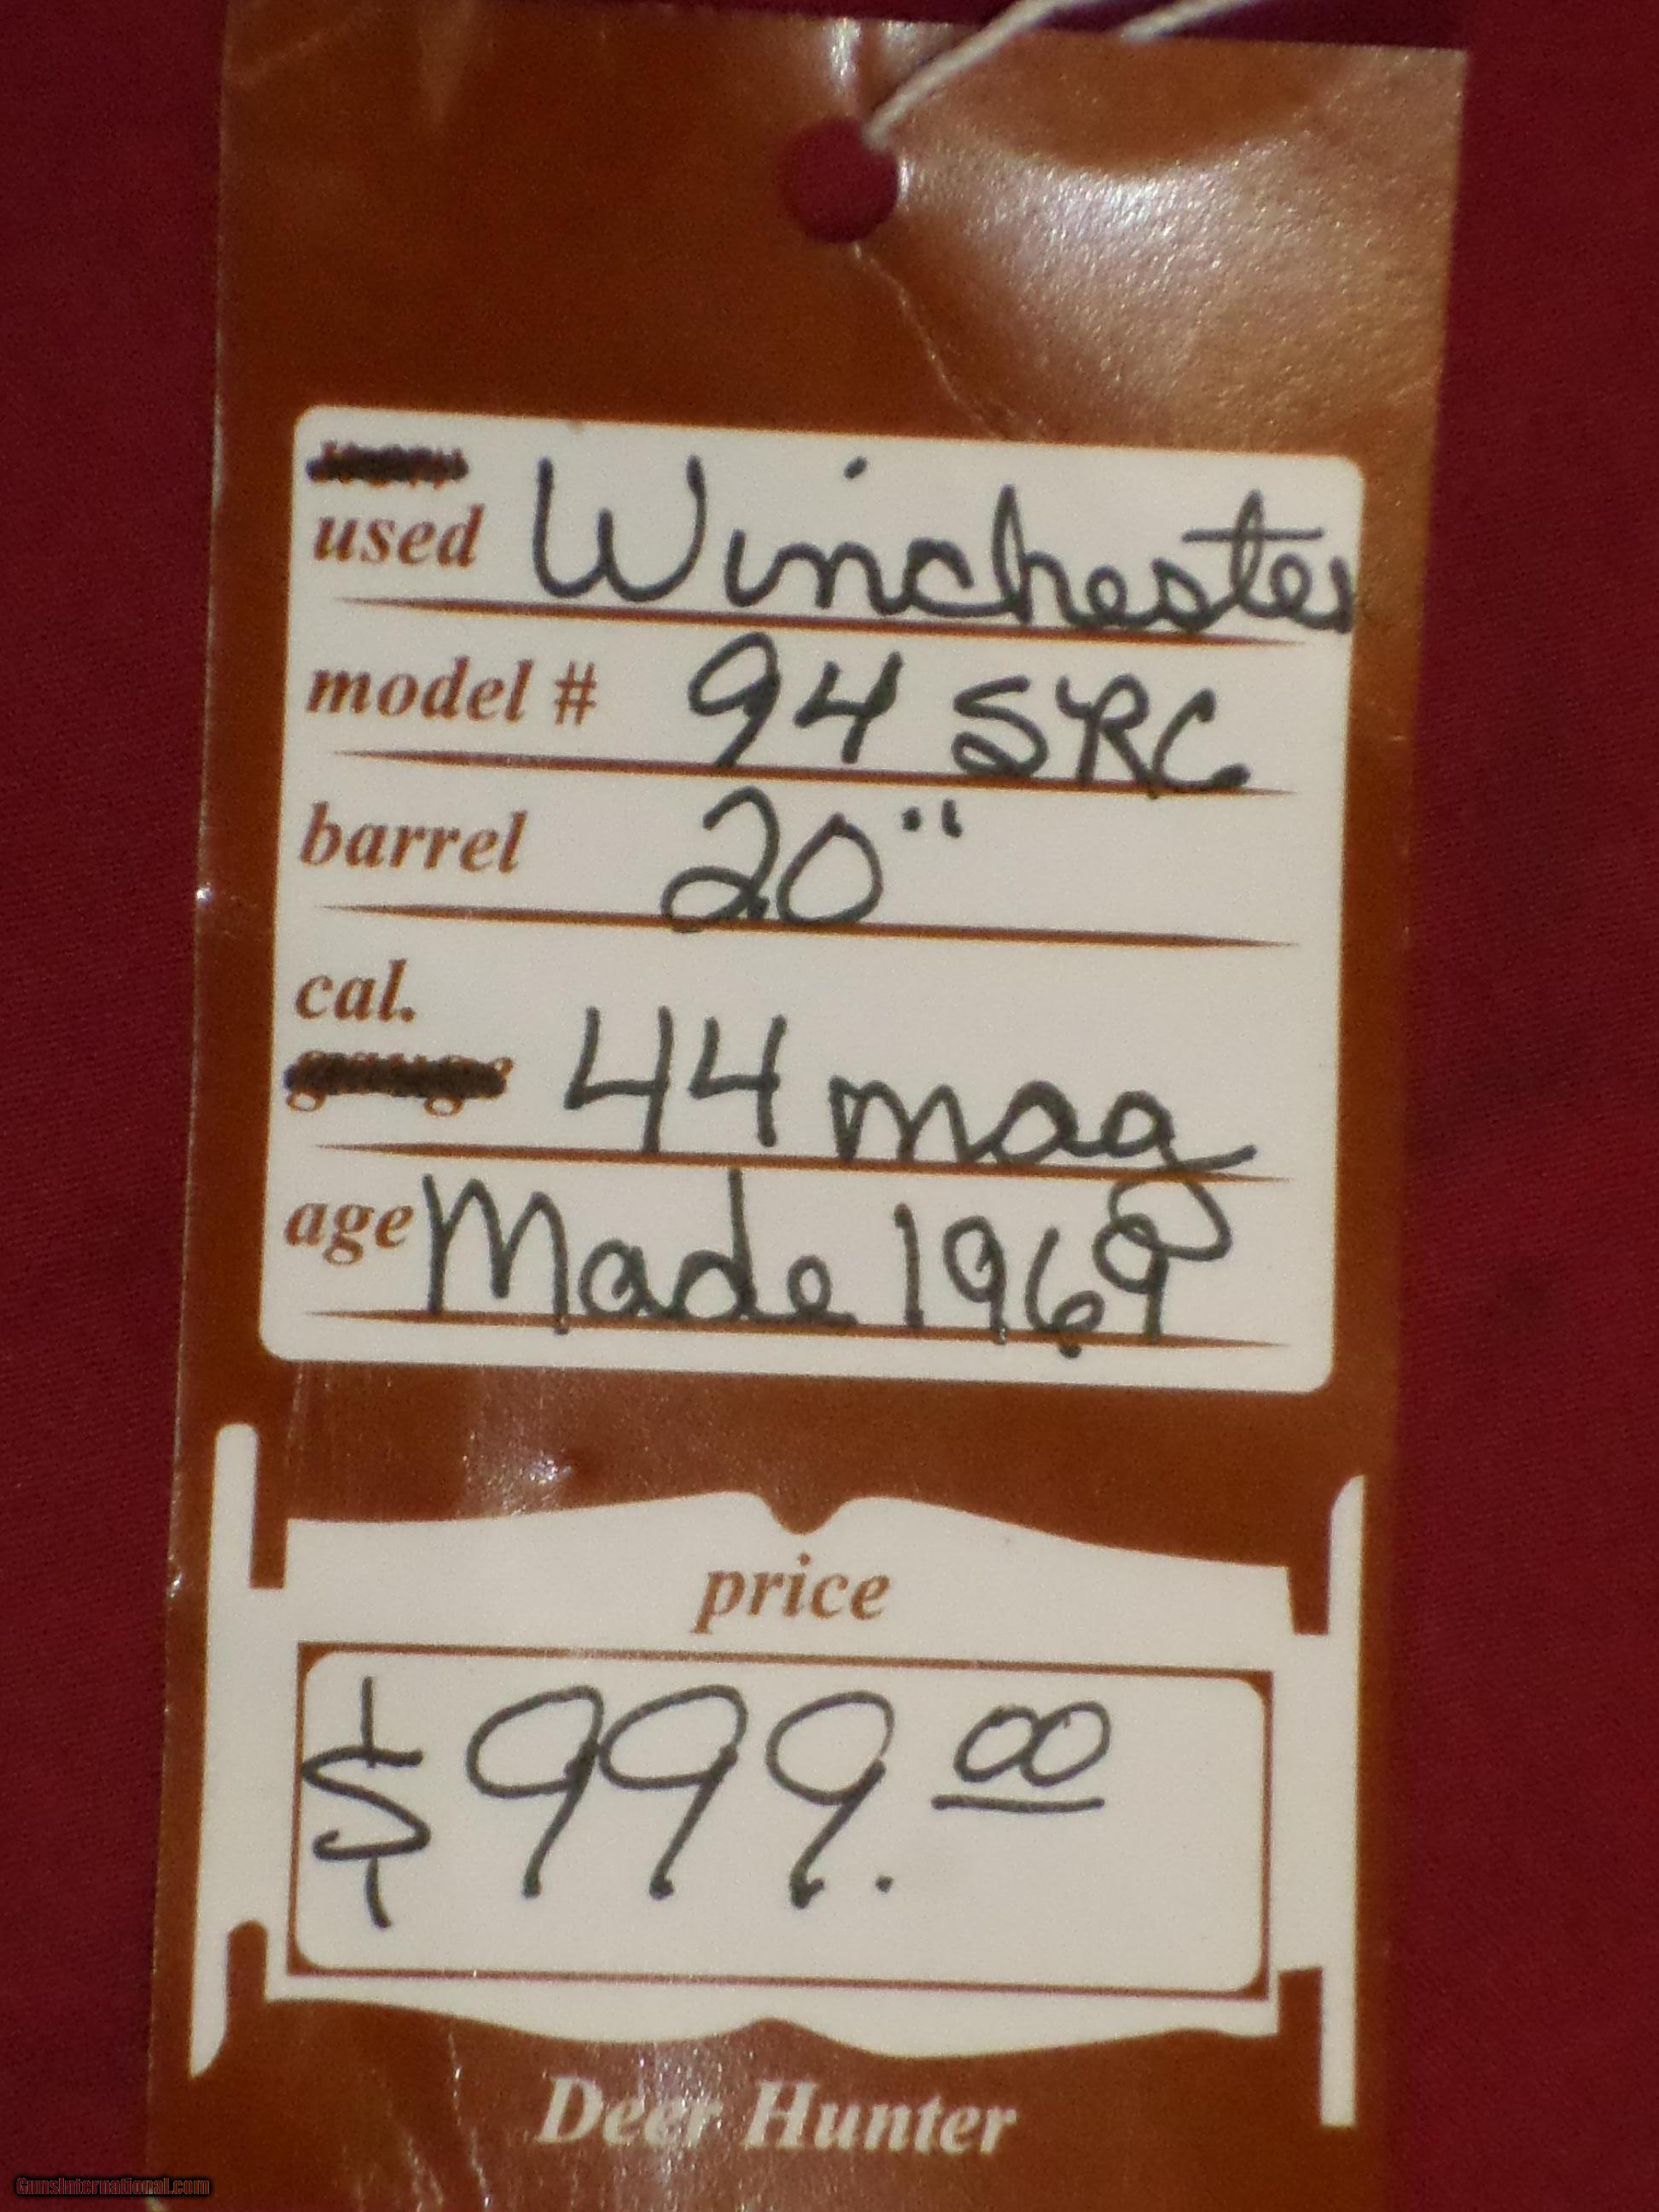 used Winchester
model # 94 SRC
barrel 20"
cal.
44 mag
age Made 1969
price
$999.00
Deer Hunter
GunsInternational.com